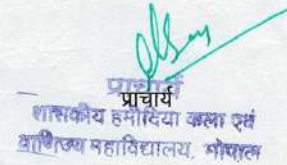 प्राचार्य
प्राचार्य
शासकीय हमीदिया कला एवं
वाणिज्य महाविद्यालय, भोपाल